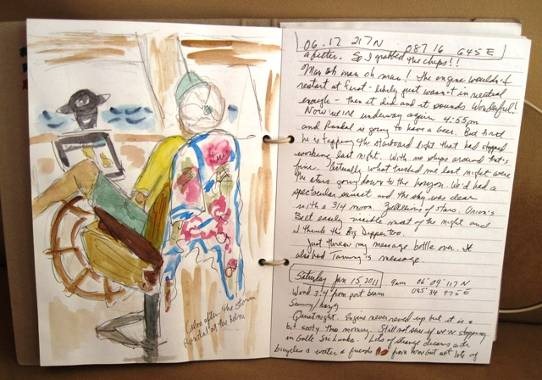 06.17 217 N 087 16 645 E
a better. So I grabbed the chips!!
Man oh man oh man! The engine wouldn't
restart at first - likely just wasn't in neutral
enough - then it did and it sounds Wonderful!
Now we're underway again 4:55pm
and is going to have a beer. But first
he is the starboard light that had stopped
working last night. With no ships around that's
fine. Actually what me last night were
the stars going down to the horizon. We'd had a
spectacular sunset and the sky was clear
with a 3/4 moon. Zillions of stars. Orion's
Belt easily visible most of the night and
I think the Big Dipper too.
Just threw my message bottle over. It
also had Tammy's message.
Saturday Jan 15, 2011 9am 06°09'.117 N
Wind 3-4 from port beam
Sunny/hazy
Quiet night. Engine never revved up but it is a
bit sooty this morning. Still not sure of we're stopping
in Galle Sri Lanka. Lots of strange dreams with
bicycles & water & friends from now but not lots of
Calm after the storm
at the helm